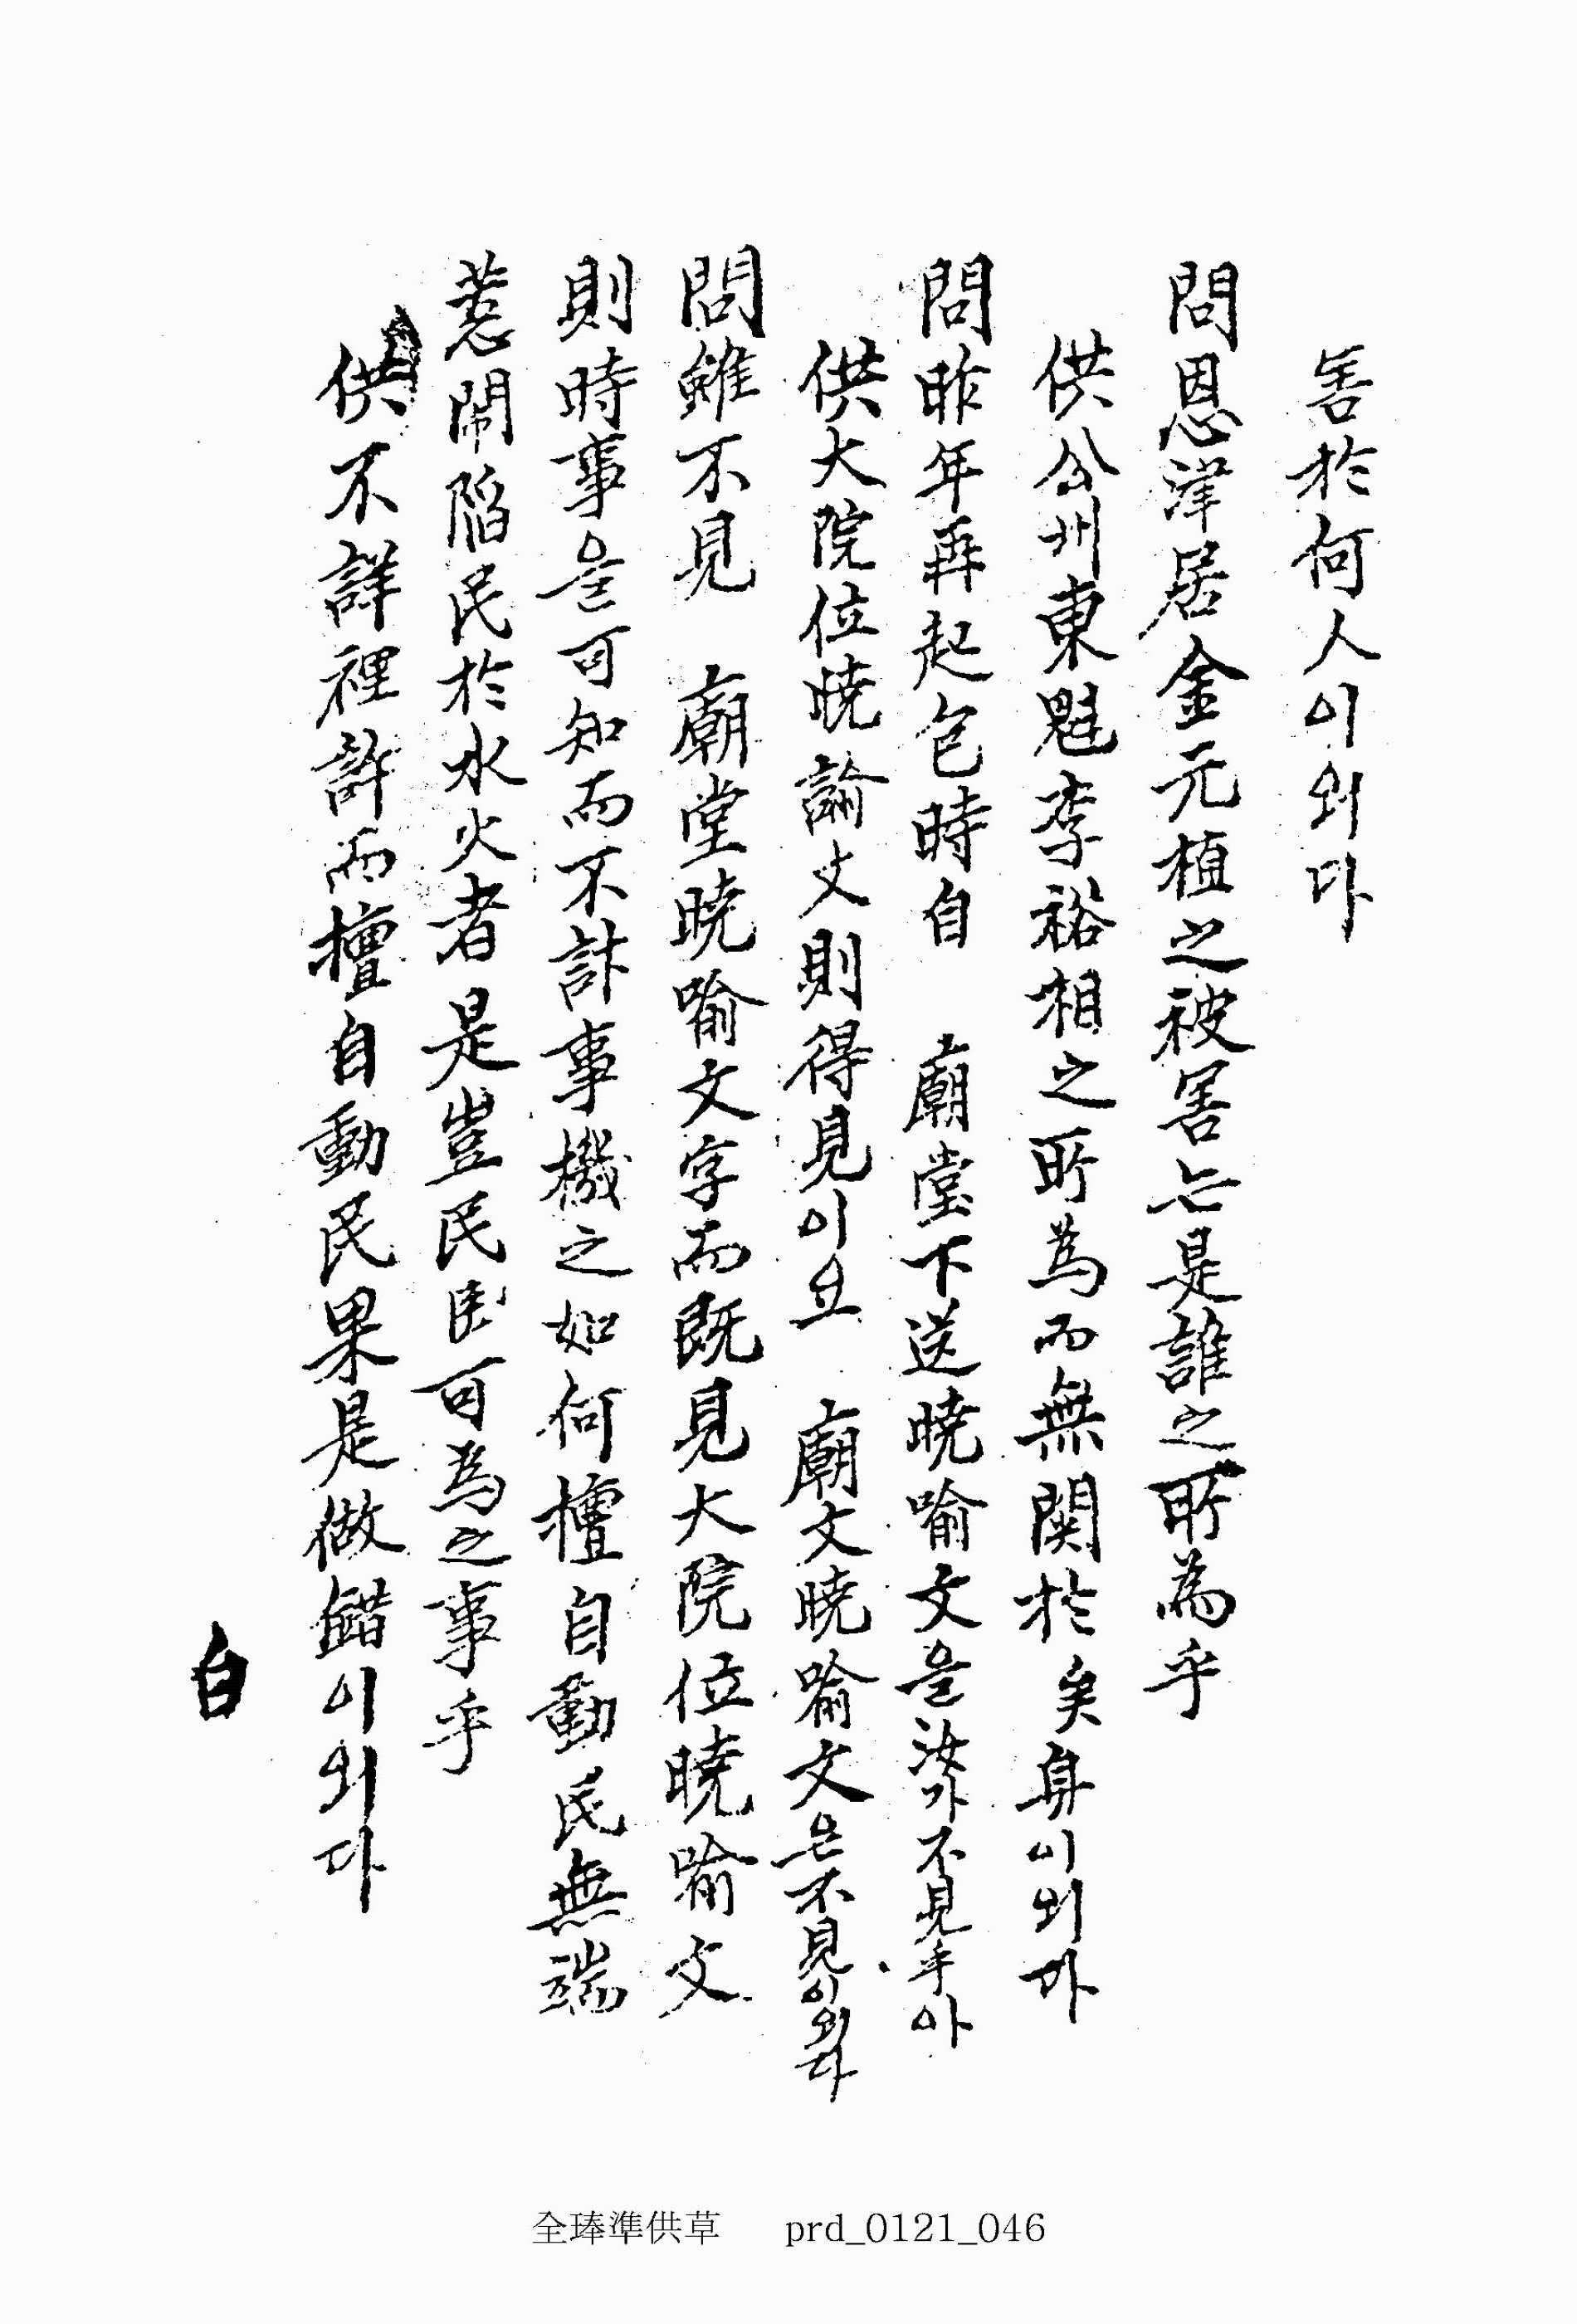 害於何人이외다
問恩津居金元植之被害는是誰之所為乎
供公州東魁李裕相之所為而無関於矣身이외다
問昨年再起包時自 廟堂下送暁喻文을汝가不見乎아
供大院位暁諭文則得見이요 廟文暁喻文은不見이외다
問雖不見 廟堂暁喻文字而既見大院位暁喻文
則時事을可知而不計事機之如何擅自動民無端
惹閙陷民於水火者是豈民臣可為之事乎
供不詳裡許而擅自動民果是做錯이외다
白
全琫準供草 prd_0121_046